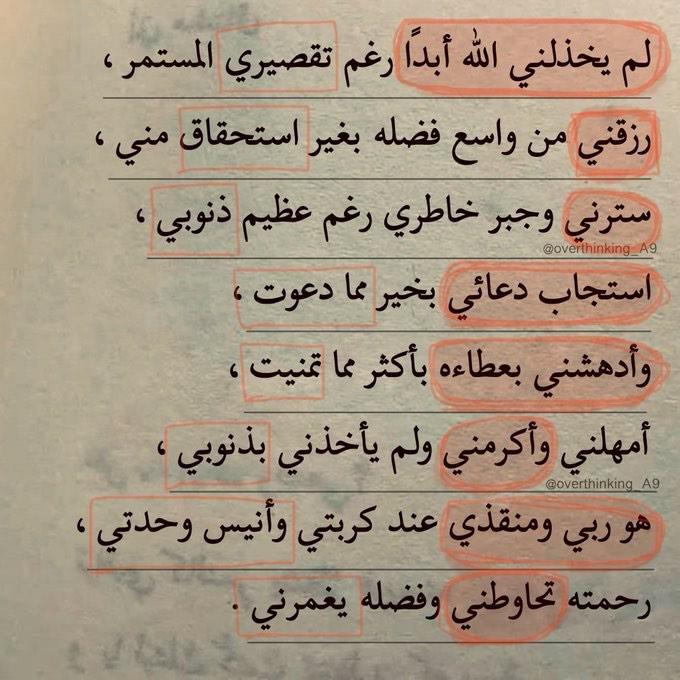 لم يخذلني الله أبدًا رغم تقصيري المستمر ،
رزقني من واسع فضله بغير استحقاق مني ،
سترني وجبر خاطري رغم عظيم ذنوبي ،
@overthinking_A9
استجاب دعائي بخير مما دعوت ،
وأدهشني بعطاءه بأكثر مما تمنيت ،
أمهلني وأكرمني ولم يأخذني بذنوبي ،
@overthinking_A9
هو ربي ومنقذي عند كربتي وأنيس وحدتي ،
رحمته تحاوطني وفضله يغمرني .